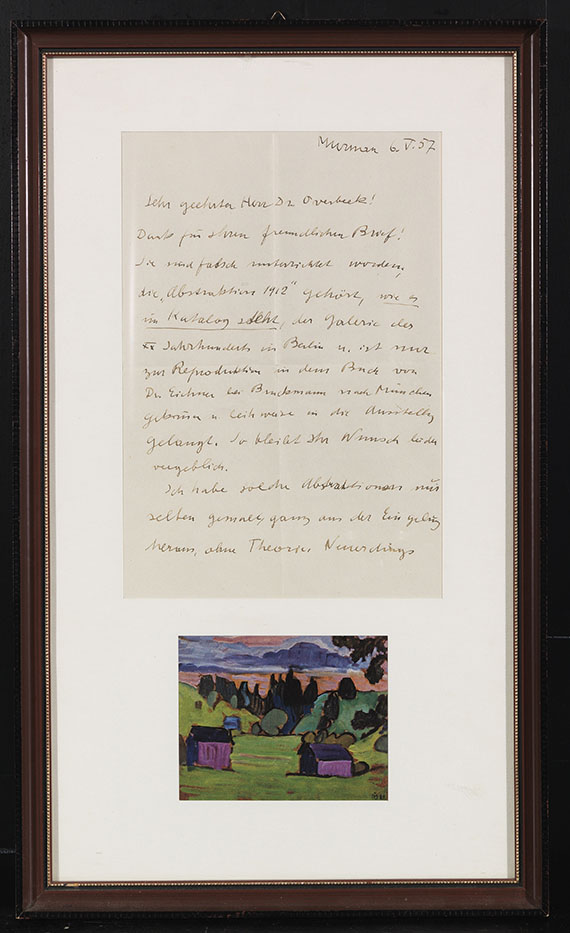 Murnau 6. V. 57
Sehr geehrter Herr Dr. Overbeck!
Dank für Ihren freundlichen Brief!
Sie sind falsch unterrichtet worden,
die „Abstraktion 1912" gehört, wie es
im Katalog steht, der Galerie des
XX Jahrhunderts in Berlin u. ist nur
zur Reproduktion in dem Buch von
Dr. Eichner bei Bruckmann nach München
gekommen u. leihweise in die Ausstellg
gelangt. So bleibt Ihr Wunsch leider
vergeblich.
Ich habe solche Abstraktionen nur
selten gemalt, ganz aus der Eingebung
heraus, ohne Theorie. Neuerdings